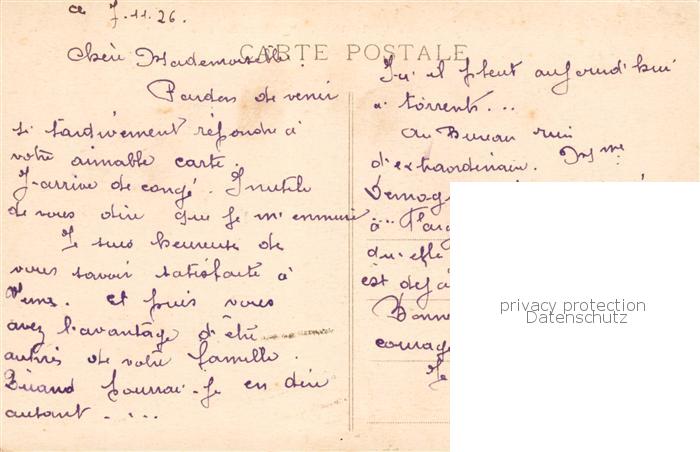 ce 7.11.26.
CARTE POSTALE
Chère Mademoiselle.
Pardon de venir
si tardivement répondre à
votre aimable carte.
J'arrive de congé. Inutile
de vous dire que je m'ennuie
Je suis heureuse de
vous savoir satisfaite à
Et puis vous
avez l'avantage d'être
auprès de votre famille.
Quand pourrai-je en dire
autant....
Ici il pleut aujourd'hui
à torrents...
Au Bureau rien
d'extraordinaire. Mme
à
qu'elle
est déjà
Bonne
courage
Je
privacy protection
Datenschutz